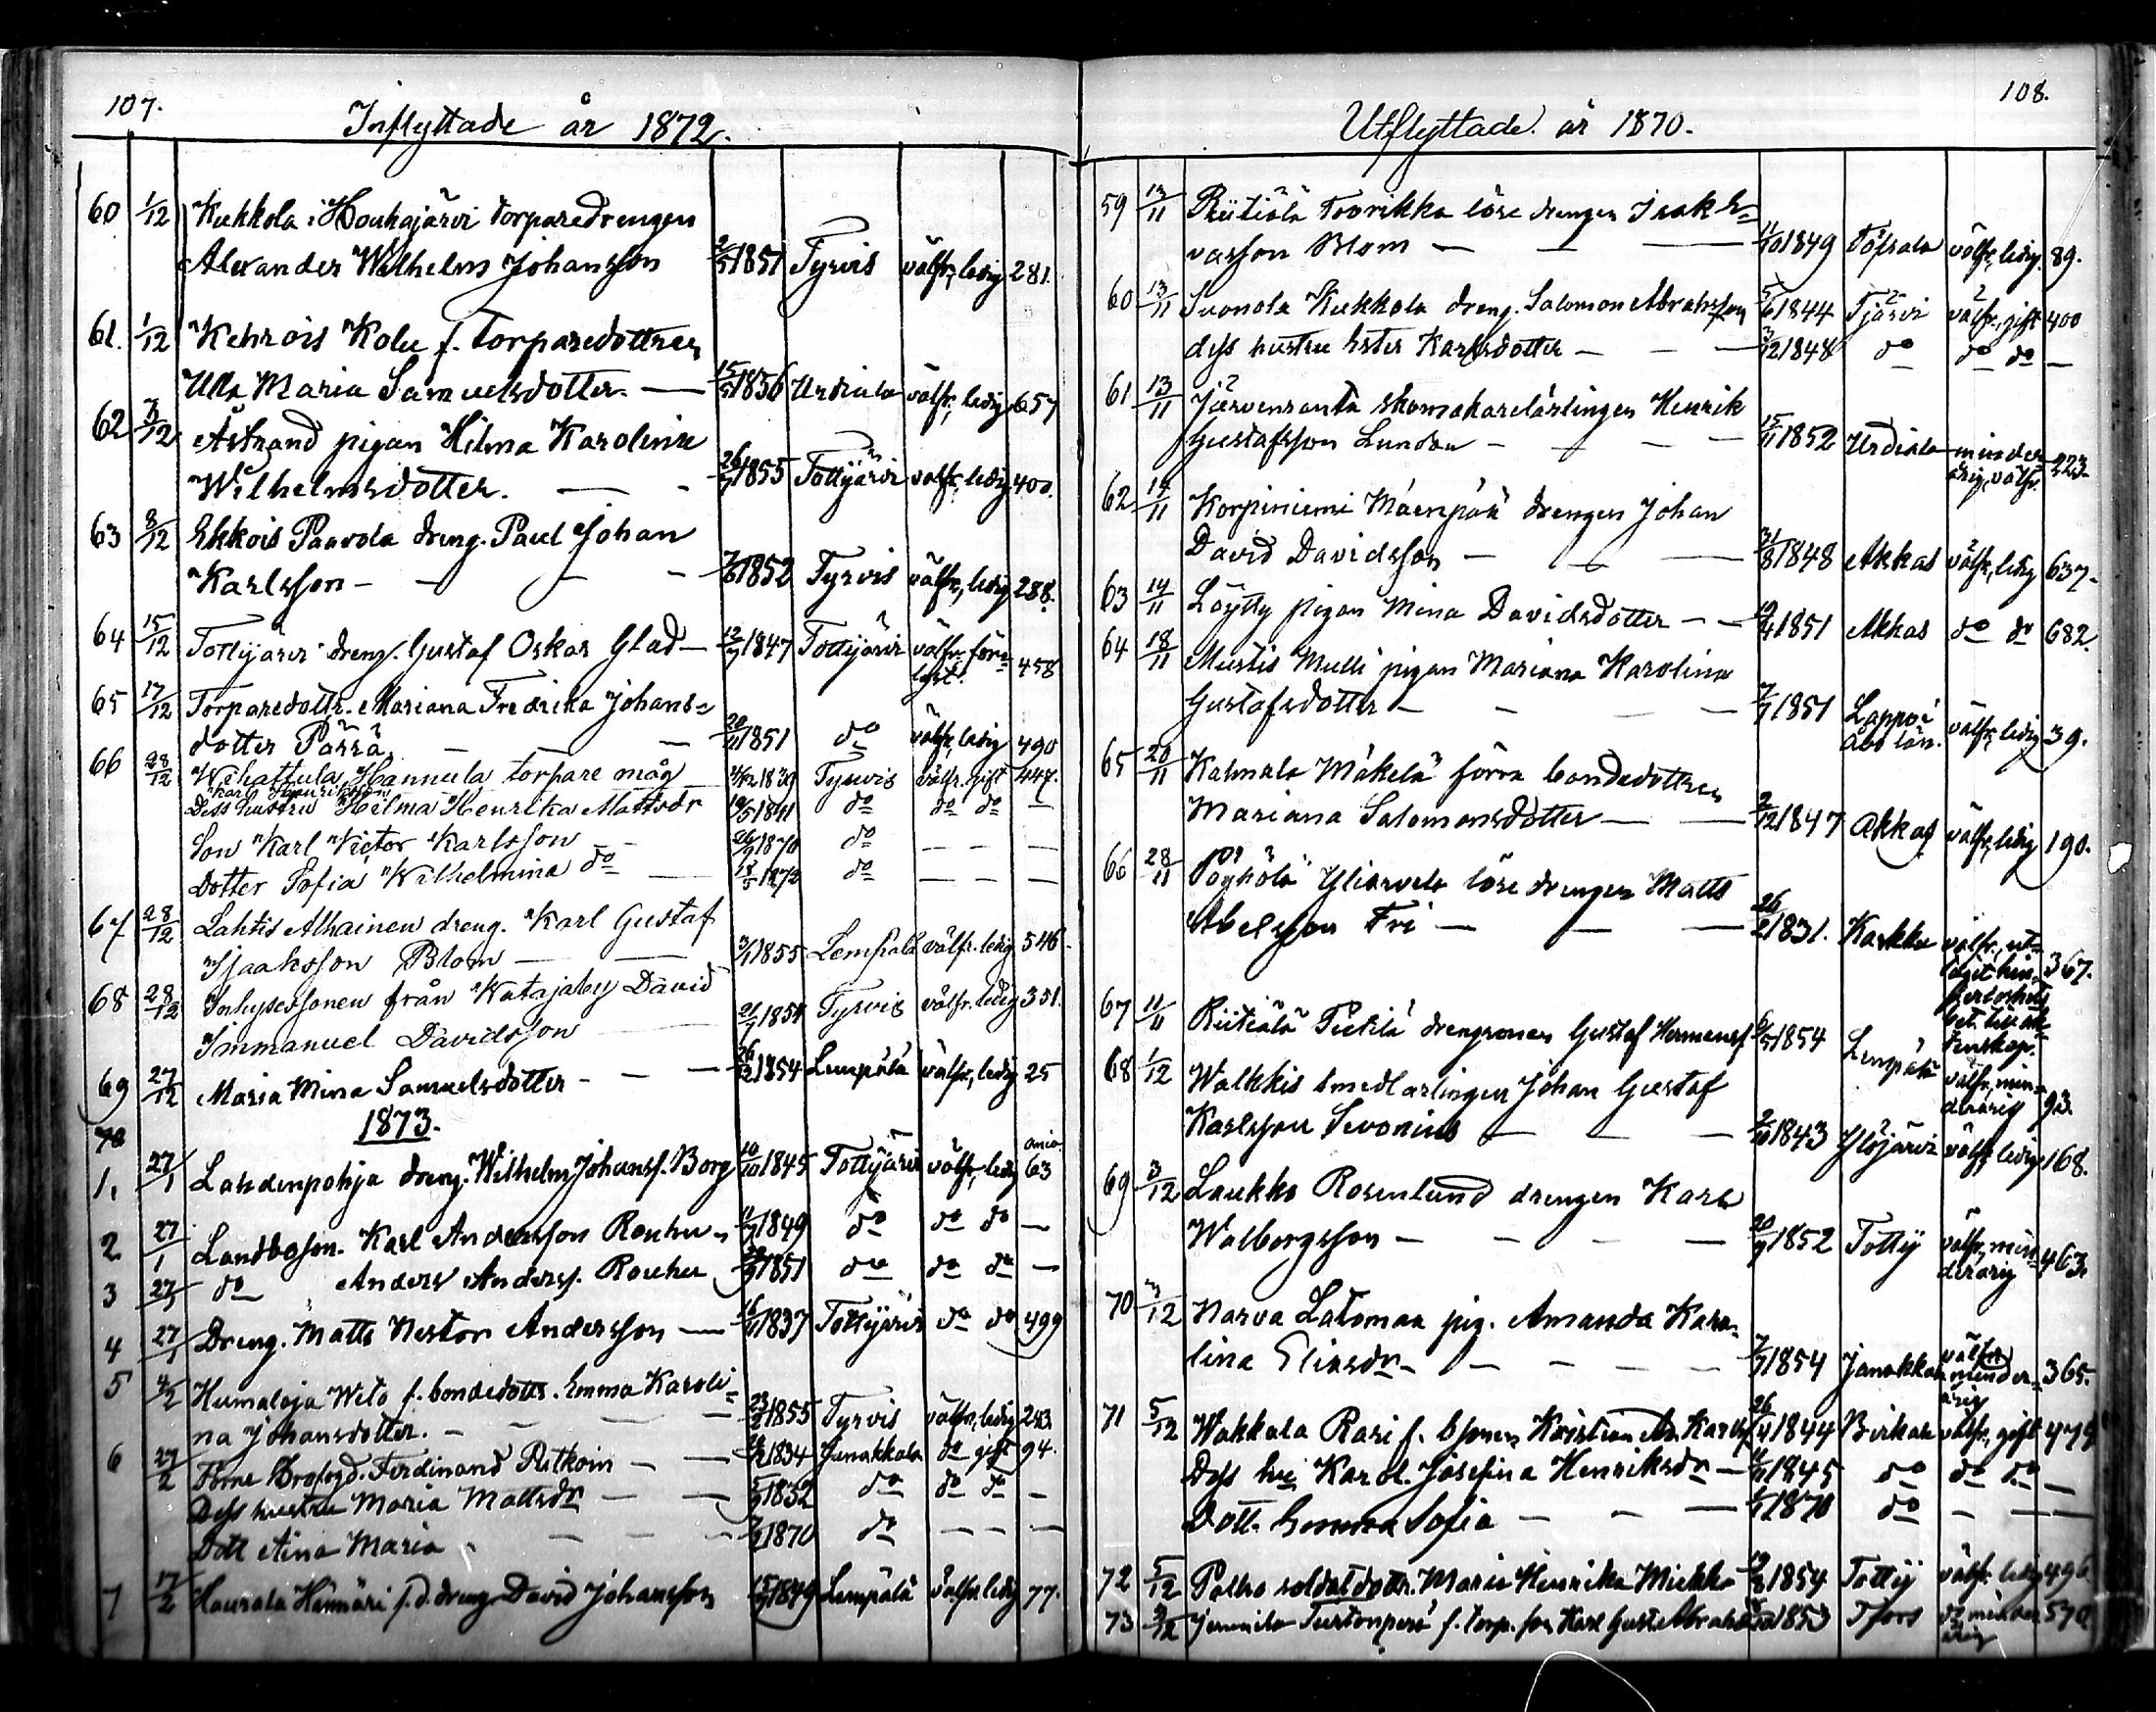 107.
Inflyttade år 1872.
60 1/12 Kukkola i Houhajärvi torparedrengen
Alexander Wilhelm Johansson 2/5 1851 Tyrvis välfr., ledig 281.
61. 1/12 Kehrois Kolu f. torparedottren
Ulla Maria Samuelsdotter. 15/5 1836 Urdiala välfr., ledig 657
62 3/12 Åstrand pigan Hilma Karolina
Wilhelmsdotter. 26/7 1855 Tottijärvi välfr., ledig 400.
63 8/12 Ekkois Paavola dreng. Paul Johan
Karlsson 1852 Tyrvis välfr., ledig 288.
64 15/12 Tottijärvi dreng. Gustaf Oskar Glad 12/7 1847 Tottijärvi välfr. 458
65 17/12 Torparedottr. Mariana Fredrika Johans-
dotter Pärrä 20/11 1851 do välfr., ledig 490
66 28/12 Wihattula Hannula torpare måg 1839 Tyrvis välfr. gift 447.
Karl Henriksson
Dess hustru Hilma Henrika Mattsdr 19/5 1841 do do do
Son Karl Victor Karlsson 26/9 1870 do
Dotter Sofia Wilhelmina do 1872 do
67 28/12 Lahtis Alhainen dreng. Karl Gustaf
Isaaksson Blom 3/1 1855 Lempälä välfr. ledig 546
68 28/12 Inhysessonen från Katajaby David
Immanuel Davidsson 1854 Tyrvis välfr. ledig 351.
69 27/12 Maria Mina Samuelsdotter 26/12 1854 Lempälä välfr., ledig 25
1873.
70
1. 27/1 Lahdenpohja dreng. Wilhelm Johanss. Borg 10/10 1845 Tottijärvi välfr., ledig 63
2 27/1 Landboson. Karl Andersson Rouhu 1849 do do do
3 27/1 do Anders Anderss. Rouhu 1851 do do do
4 27/1 Dreng. Matts Nestor Andersson 16/11 1837 Tottijärvi do do 499
5 4/2 Humaloja Wito f. bondedottr. Emma Karoli-
na Johansdotter. 23/2 1855 Tyrvis välfr., ledig 243
6 27/2 Ferdinand Ritkoin 1834 Janakkala do gift 94.
Dess hustru Maria Mattsdr 1832 do do do
Dott Aina Maria 1870 do
7 17/2 Haurala dreng David Johansson 1849 Lempälä välfr. ledig 77.
108.
Utflyttade år 1870.
59 13/11 Riitiälä Toorikka löse drengen Isak
vasson Blom 11/10 1849 välfr., ledig. 89.
60 13/11 Suonola Kukkola dreng. Salomon Abrahsson 5/6 1844 Tjärvi välfr., gift 400
dess hustru Ester Karlsdotter 3/12 1848 do do do
61 13/11 Järvenranta skomakarelärlingen Henrik
Gustafsson Lunden 15/11 1852 Urdiala minder-
årig, välfr. 223
62 14/11 Korpiniemi Mäenpää drengen Johan
David Davidsson 31/8 1848 Akkas välfr., ledig 637.
63 14/11 Löytty pigan Mina Davidsdotter 1851 Akkas do do 682.
64 18/11 Mustis Mulli pigan Mariana Karolina
Gustafsdotter 7/7 1851 Lappo i
Åbo län. välfr., ledig 39.
65 20/11 Kalmala Mäkelä förra bondedottren
Mariana Salomonsdotter 2/12 1847 Akkas välfr., ledig 190.
66 28/11 löse drengen Matts
Abelsson Fri 26/2 1831. Karkku välfr., 367.
67 11/11 Riitiälä Pietilä drengsonen Gustaf Hermanss. 1854 Lempälä välfr., min-
derårig 93.
68 1/12 Walkkis smedlärlingen Johan Gustaf
Karlsson Sevonius 2/10 1843 Ylöjärvi välfr. ledig 168.
69 3/12 Laukko Rosenlund drengen Karl
Walborgsson 20/9 1852 Tottij välfr., min-
derårig 463.
70 3/12 Narva Latomaa pig. Amanda Karo-
lina Eliasdr 7/7 1854 Janakkala välfr.
minder-
årig 365.
71 5/12 Wakkala Rasi f. Kristian Karlss 26/4 1844 Birkala välfr., gift 479
Dess hu Karol. Josefina Henriksdr 1845 do do do
Dott. Emma Sofia 1870 do
72 5/12 Palho soldatdottr. Maria Henrika Miekka 1854 Tottij välfr. ledig 496
73 f. torp. son Karl Gust. Abrahs 1853 Tfors do minder
årig 570